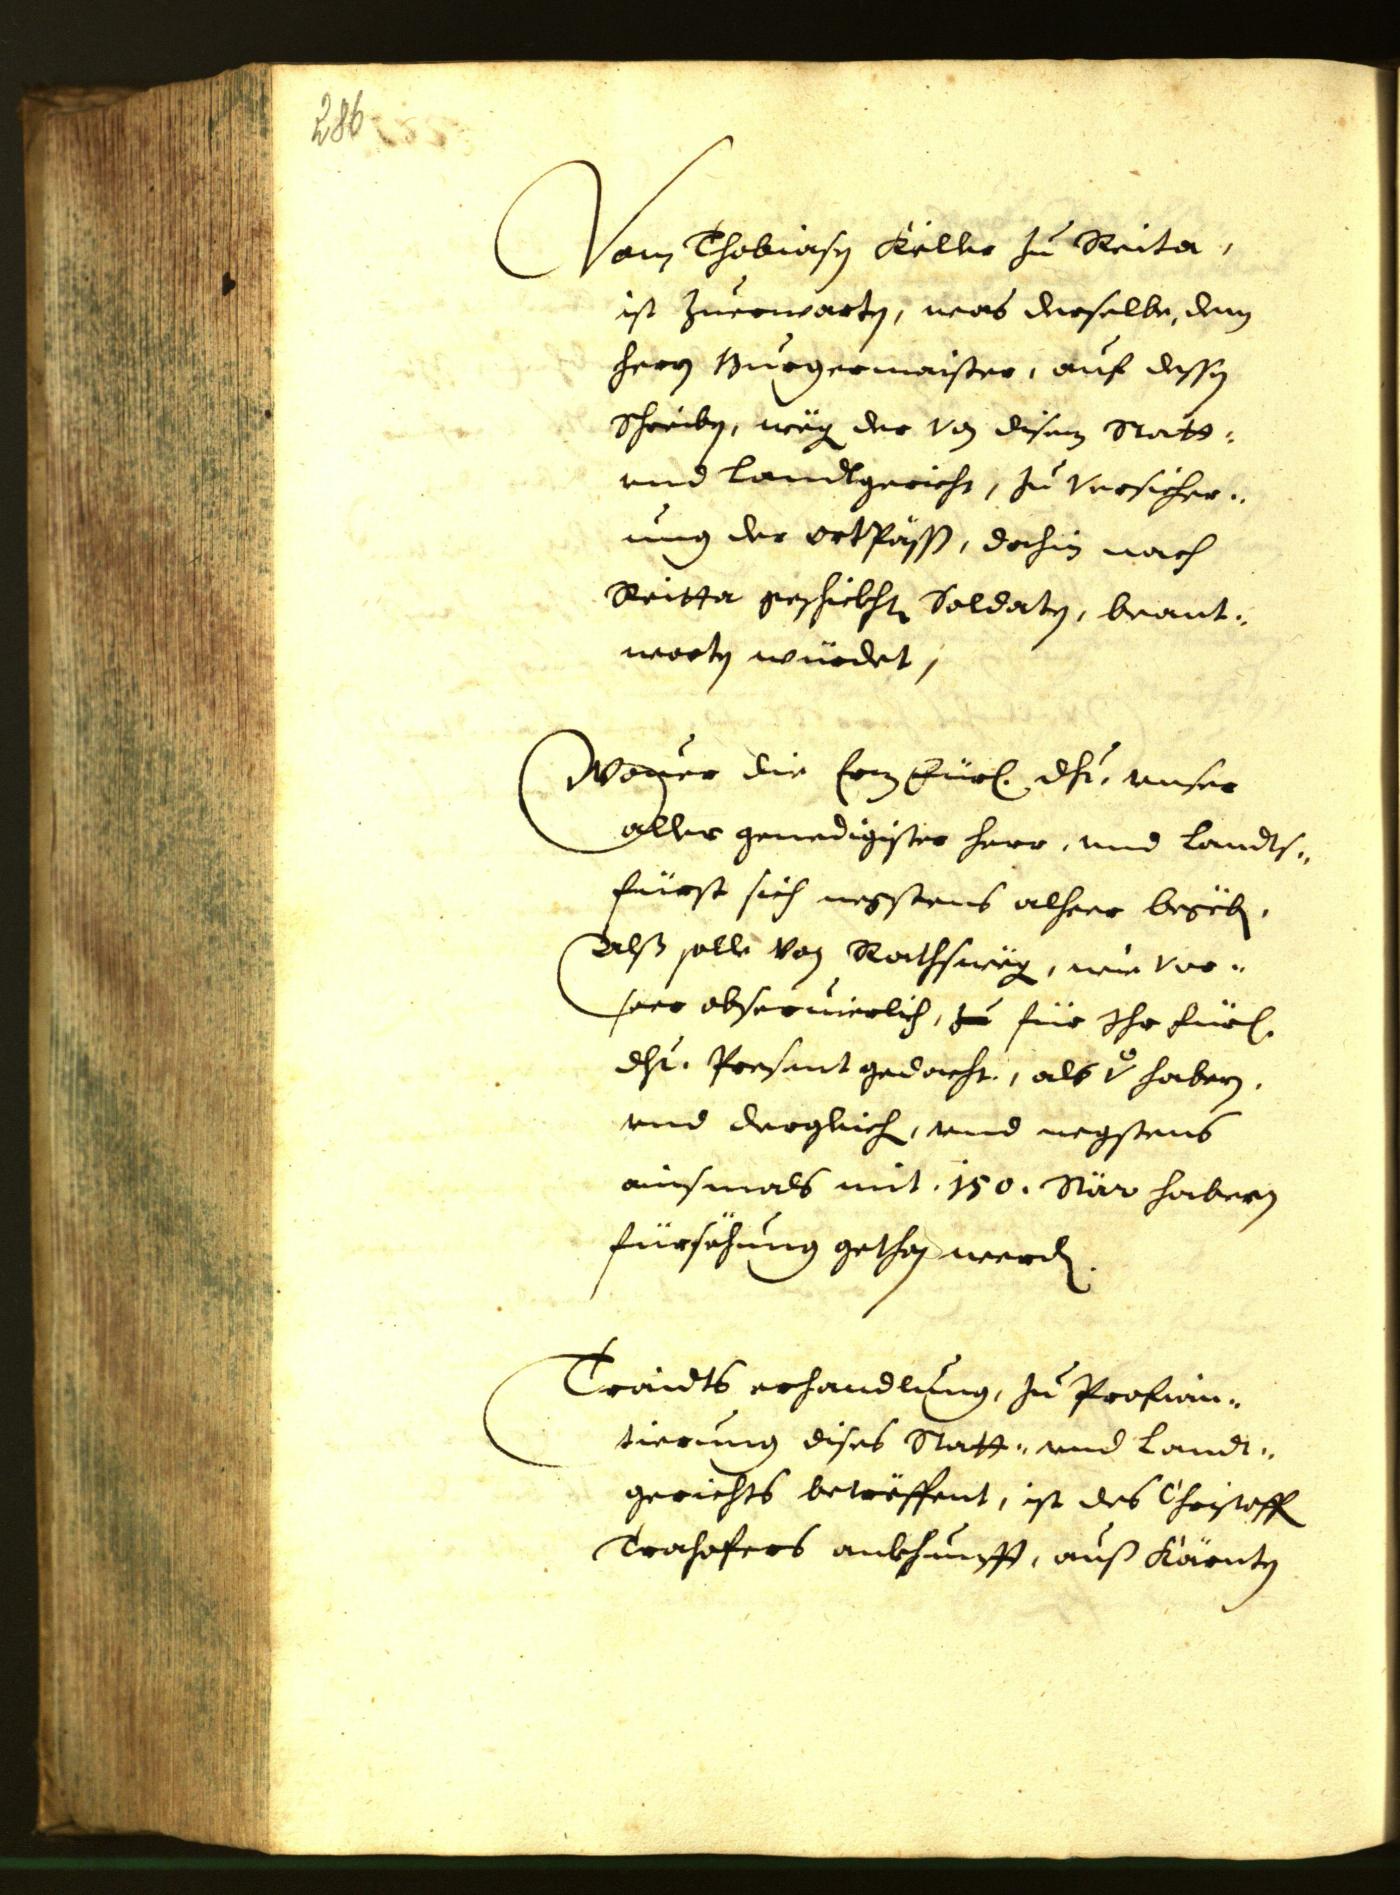 286
Vom Thobiasn Keller zu Reita,
ist zuerwartn, was derselbe, dem
hern Burgermaister, auf dessn
Schreibn, weg der von disem Statt=
und Landtgericht, zu Versicher=
ung der ortPäss, dahin nach
Reitta geschickhtn Soldatn, beant=
wortn würdet,
Wover die Ern Fürl. dht. unser
aller genedigister herr, und Landts=
fürst sich negstens alheer begeb,
Alß solle von Rathsweg, wie vor=
heer observierlich, für Ihr fürl.
dht. Present gedacht, als V haber,
und dergleich, und negstens
ainsmals mit .150. Stär habern
fürsehung gethon werd.
Traidts erhandlung, zu Profian=
tierung dises Statt= und Landt=
gerichts betreffent, ist des Christoff
Trahofers ankhunfft, auß Kärntn